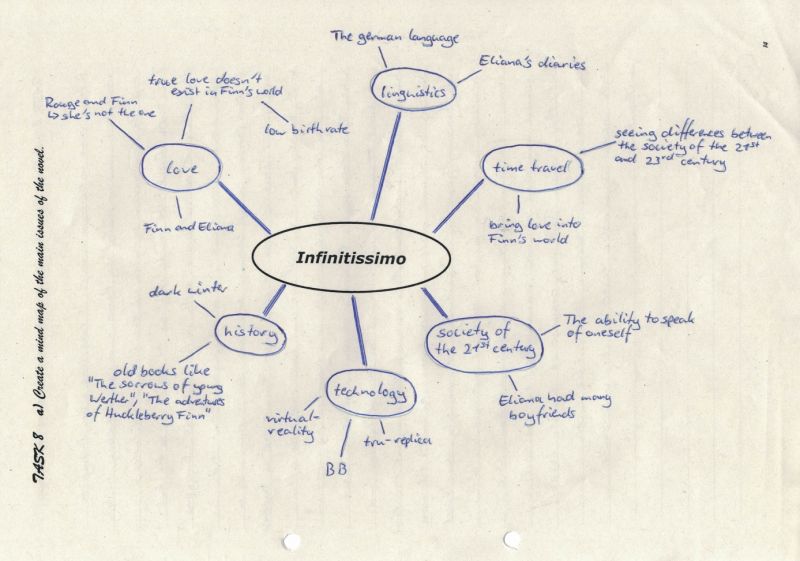 TASK 8 a) Create a mind map of the main issues of the novel.
Infinitissimo
linguistics
The german language
Eliana's diaries
time travel
seeing differences between
the society of the 21st
and 23rd century
bring love into
Finn's world
society of
the 21st century
The ability to speak
of oneself
Eliana had many
boyfriends
technology
virtual-
reality
BB
tru-replica
history
dark winter
old books like
"The sorrows of young
Werther", "The adventures
of Huckleberry Finn"
love
Rouge and Finn
↳ she's not the one
true love doesn't
exist in Finn's world
low birthrate
Finn and Eliana